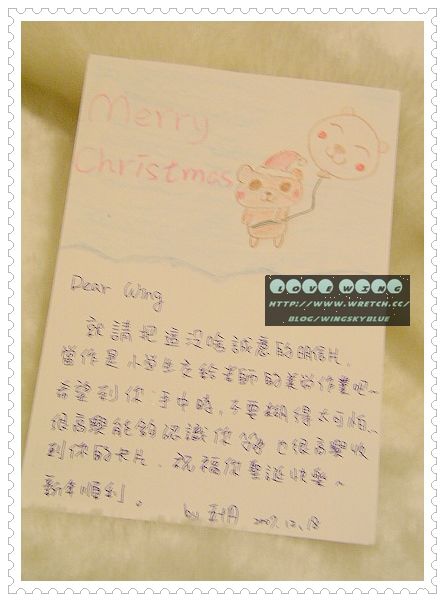 Merry
Christmas
LOVE WING
HTTP://WWW.WRETCH.CC/
BLOG/WINGSKYBLUE
Dear Wing
就請把這沒啥誠意的明信片.
當作是小學生交給老師的美勞作業吧~
希望到你手中時,不要糊得太可怕~
很高興能夠認識你 也很高興收
到你的卡片. 祝福你聖誕快樂。
新年順利。
by 2007.12.18